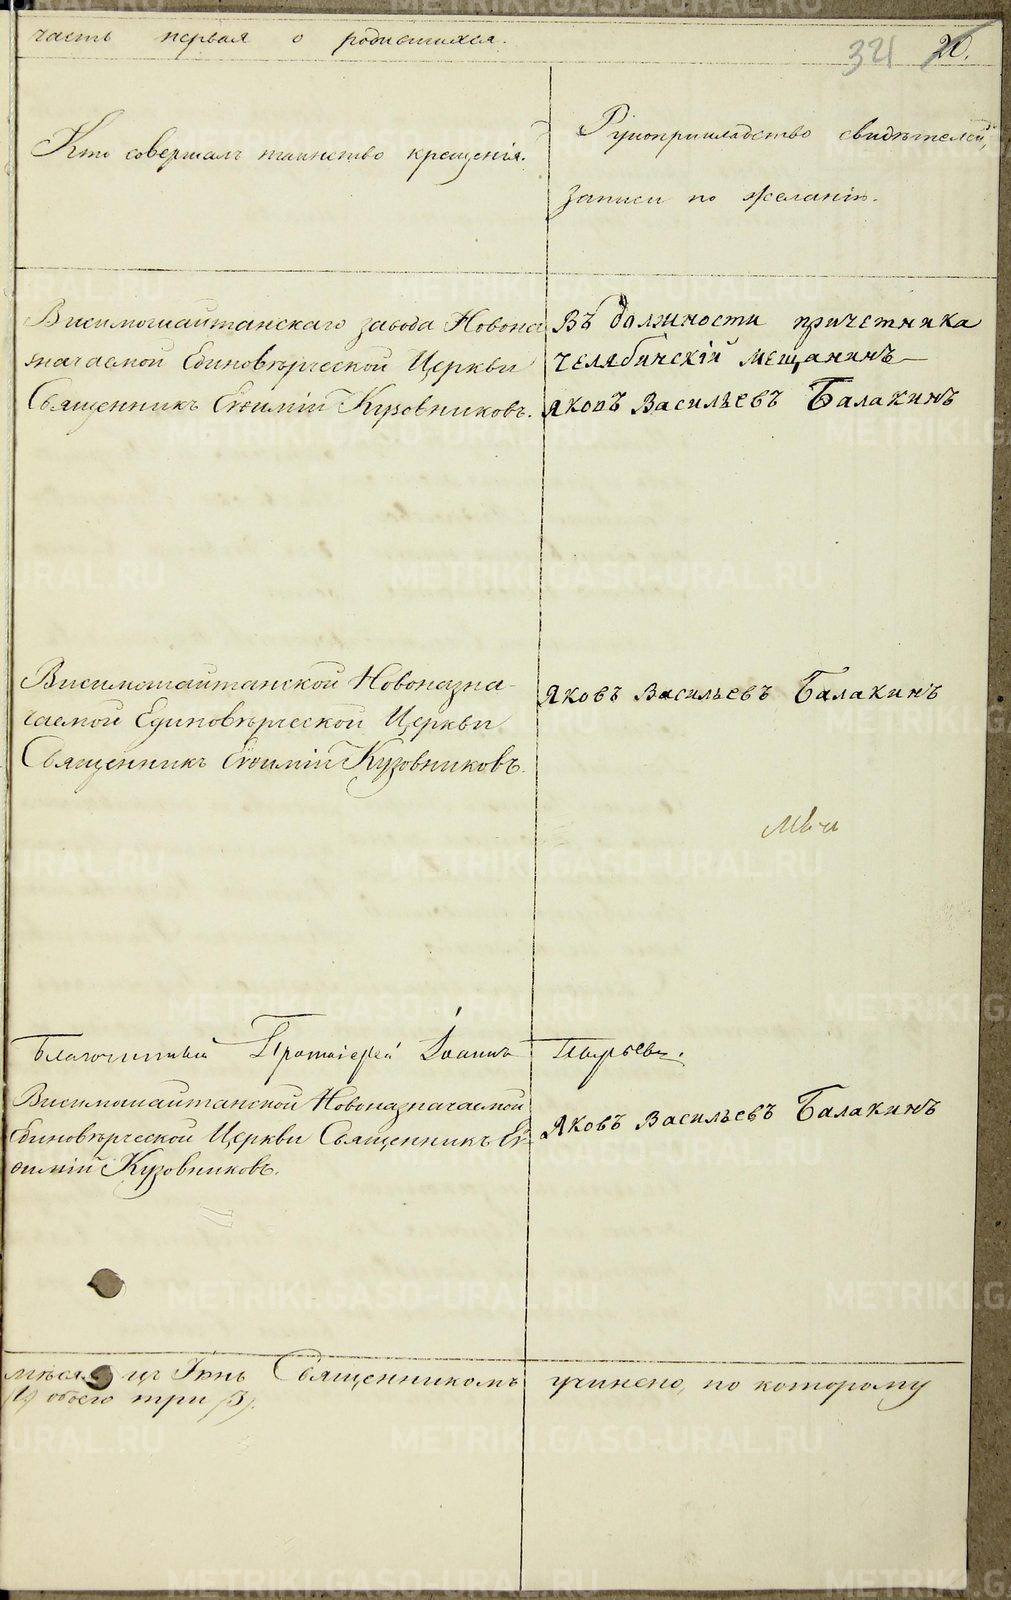 часть первая о родившихся.
321 20.
Кто совершалъ таинство крещенія.
Рукоприкладство свидѣтелей
записи по желанію.
Висимошайтанскаго завода Новона
значаемой Единовѣрческой Церкви
Священникъ Евѳимій Кузовниковъ.
Въ должности причетника
челябинскій мещанинъ
Яковъ Васильевъ Балакинъ
Висимошайтанской Новоназна-
чаемой Единовѣрческой Церкви
Священникъ Евѳимій Кузовниковъ.
Яковъ Васильевъ Балакинъ
Благочинный Протоіерей Іоаннъ
Висимошайтанской Новоназначаемой
Единовѣрческой Церкви Священникъ Ев-
ѳимій Кузовниковъ.
Яковъ Васильевъ Балакинъ
мѣсяцъ Іюнь Священникомъ учинено, по которому
(1) обоего три (3).
METRIKI.GASO-URAL.RU